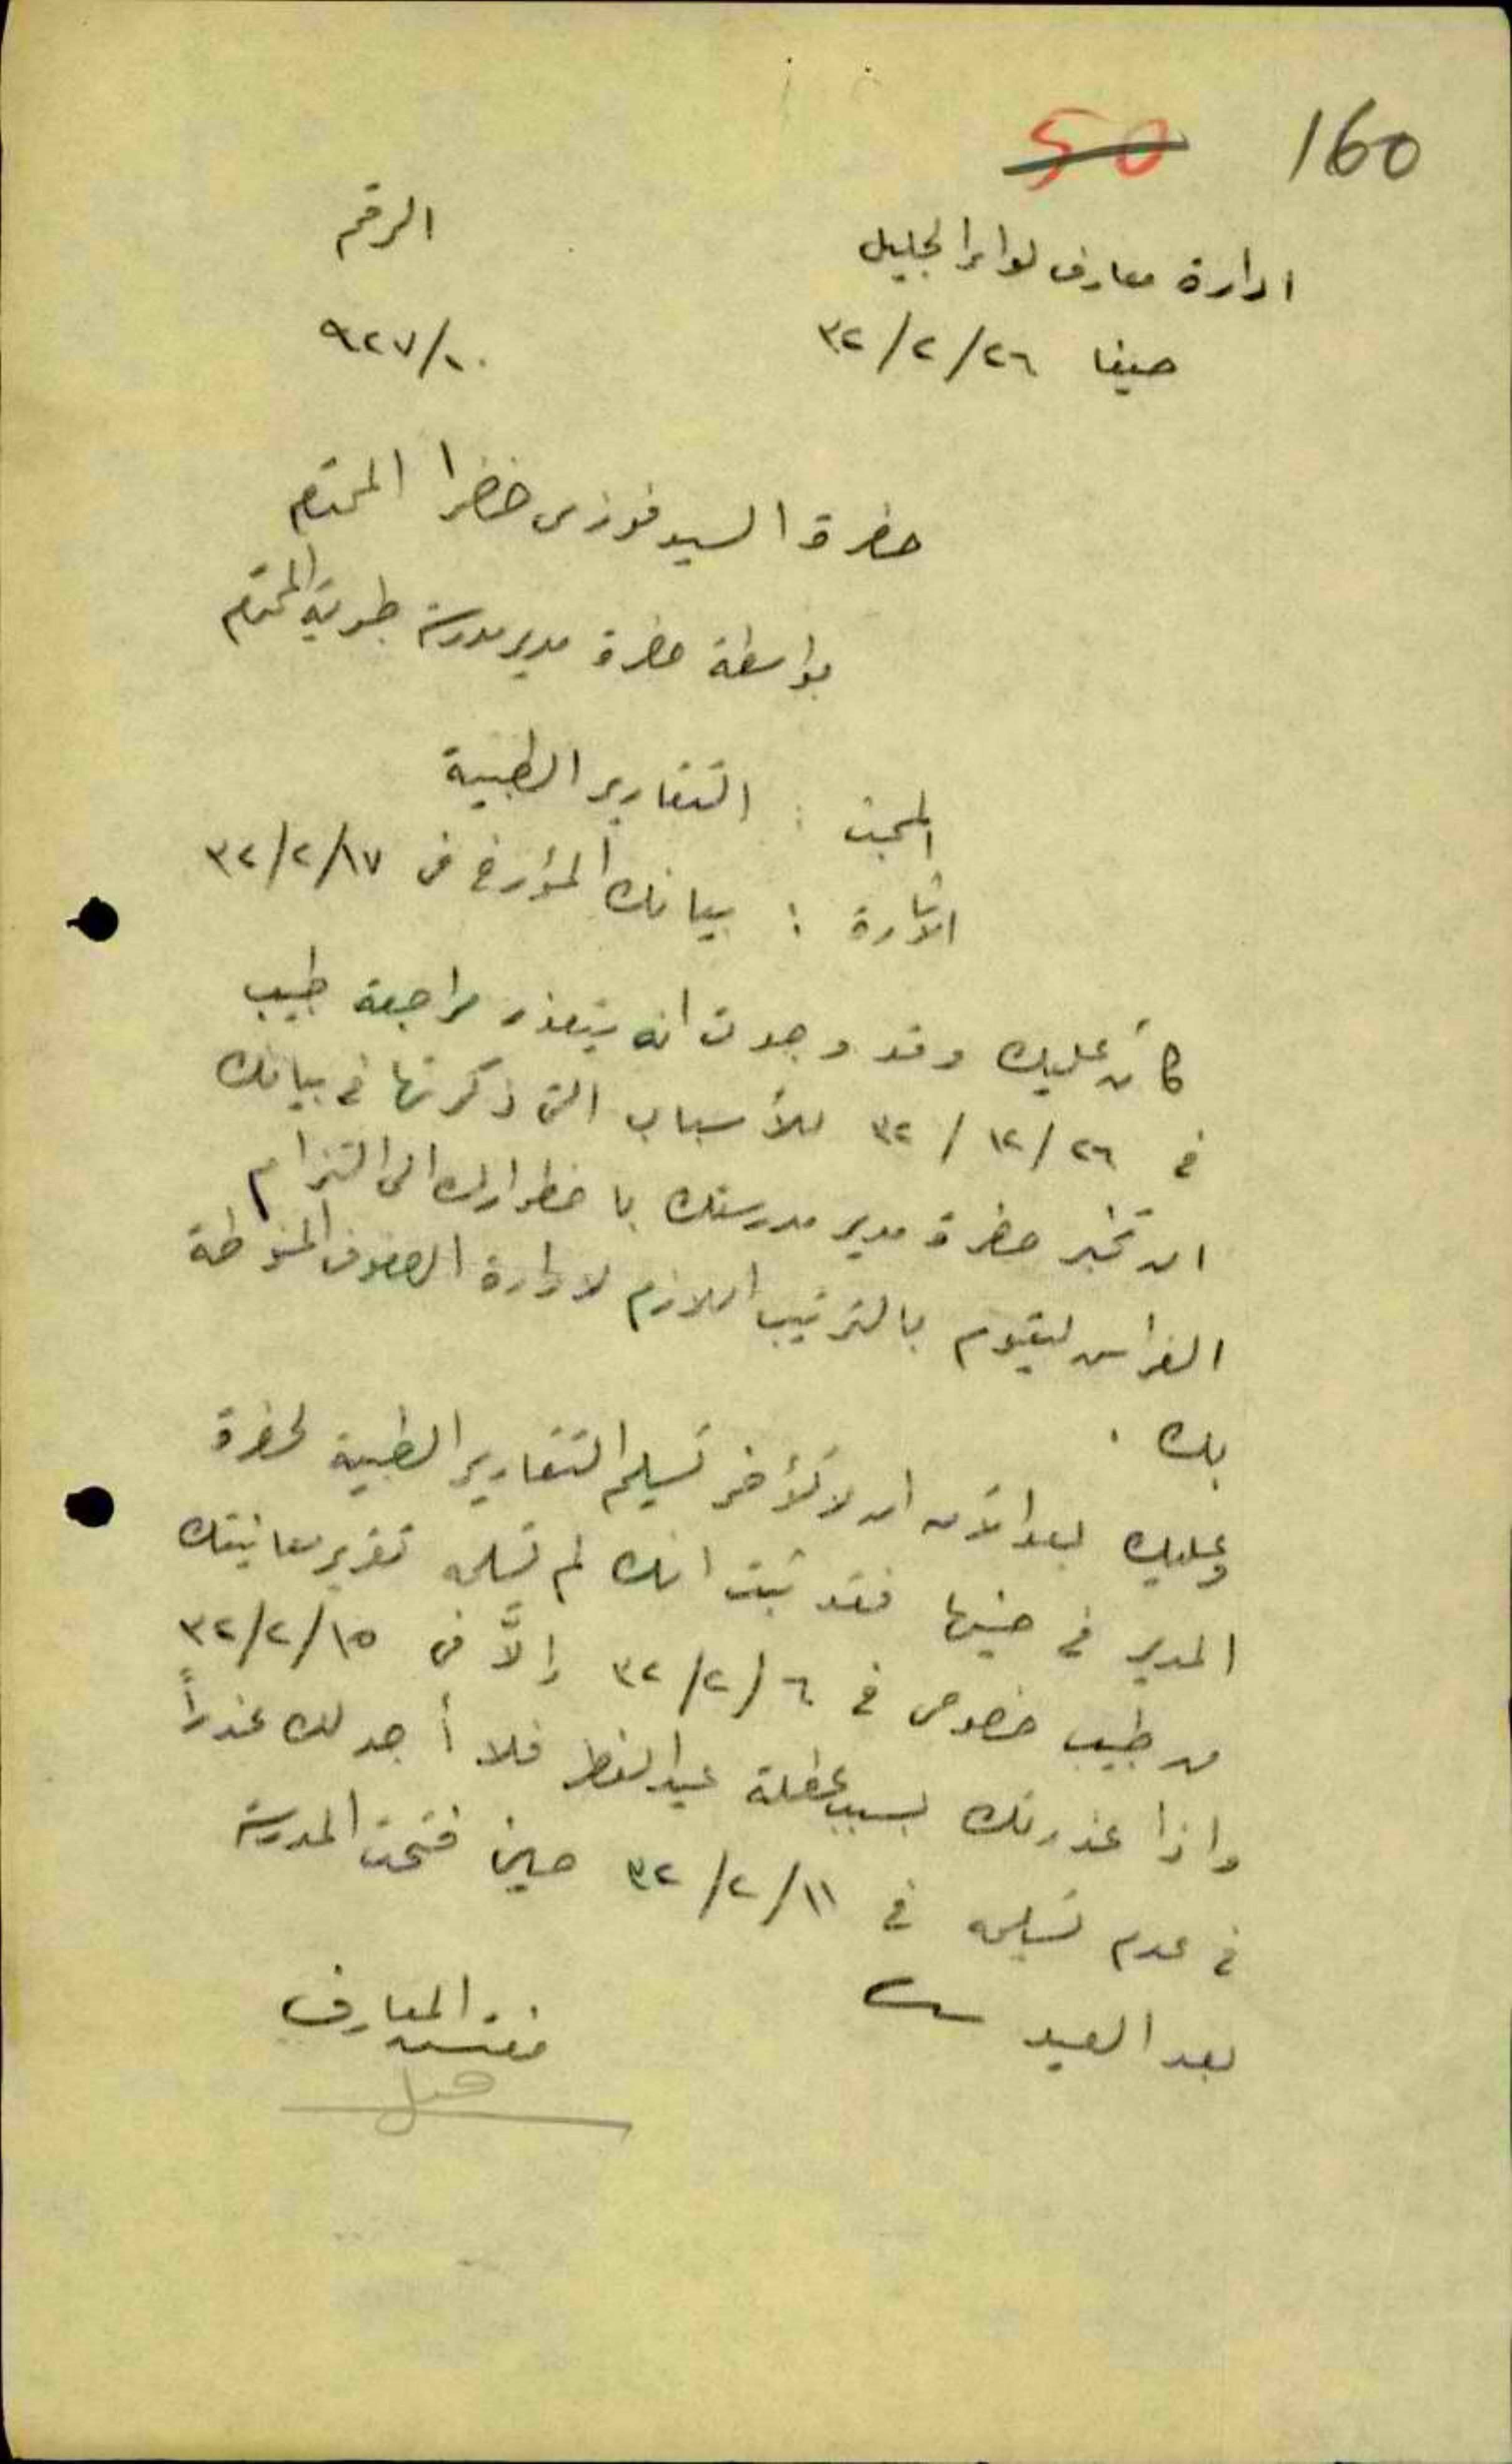 50 160
ادارة معارف لواء الجليل الرقم
حيفا ٢٦/٢/٣٢ ٩٢٧/١٠
حضرة السيد فوزي خضرا المحترم
بواسطة حضرة مدير مدرسة طبرية المحترم
المبحث : التقارير الطبية
الاشارة : بيانك المؤرخ في ١٧/٢/٣٢
كان عليك وقد وجدت انه يتعذر مراجعة طبيب
في ٢٦/١٢/٣٢ للأسباب التي ذكرتها في بيانك
ان تخبر حضرة مدير مدرستك باضطرارك الى التزام
الفراش ليقوم بالترتيب اللازم لادارة الصفوف المنوطة
بك .
وعليك بعد الآن ان لا تأخر تسليم التقارير الطبية لحضرة
المدير في حينها فقد ثبت انك لم تسلمه تقرير معاينتك
من طبيب خصوصي في ٦/٢/٣٢ إلاّ في ١٥/٢/٣٢
واذا عذرتك بسبب عطلة عيد الفطر فلا أجد لك عذراً
في عدم تسليمه في ١١/٢/٣٢ حين فتحت المدرسة
بعد العيد
مفتش المعارف